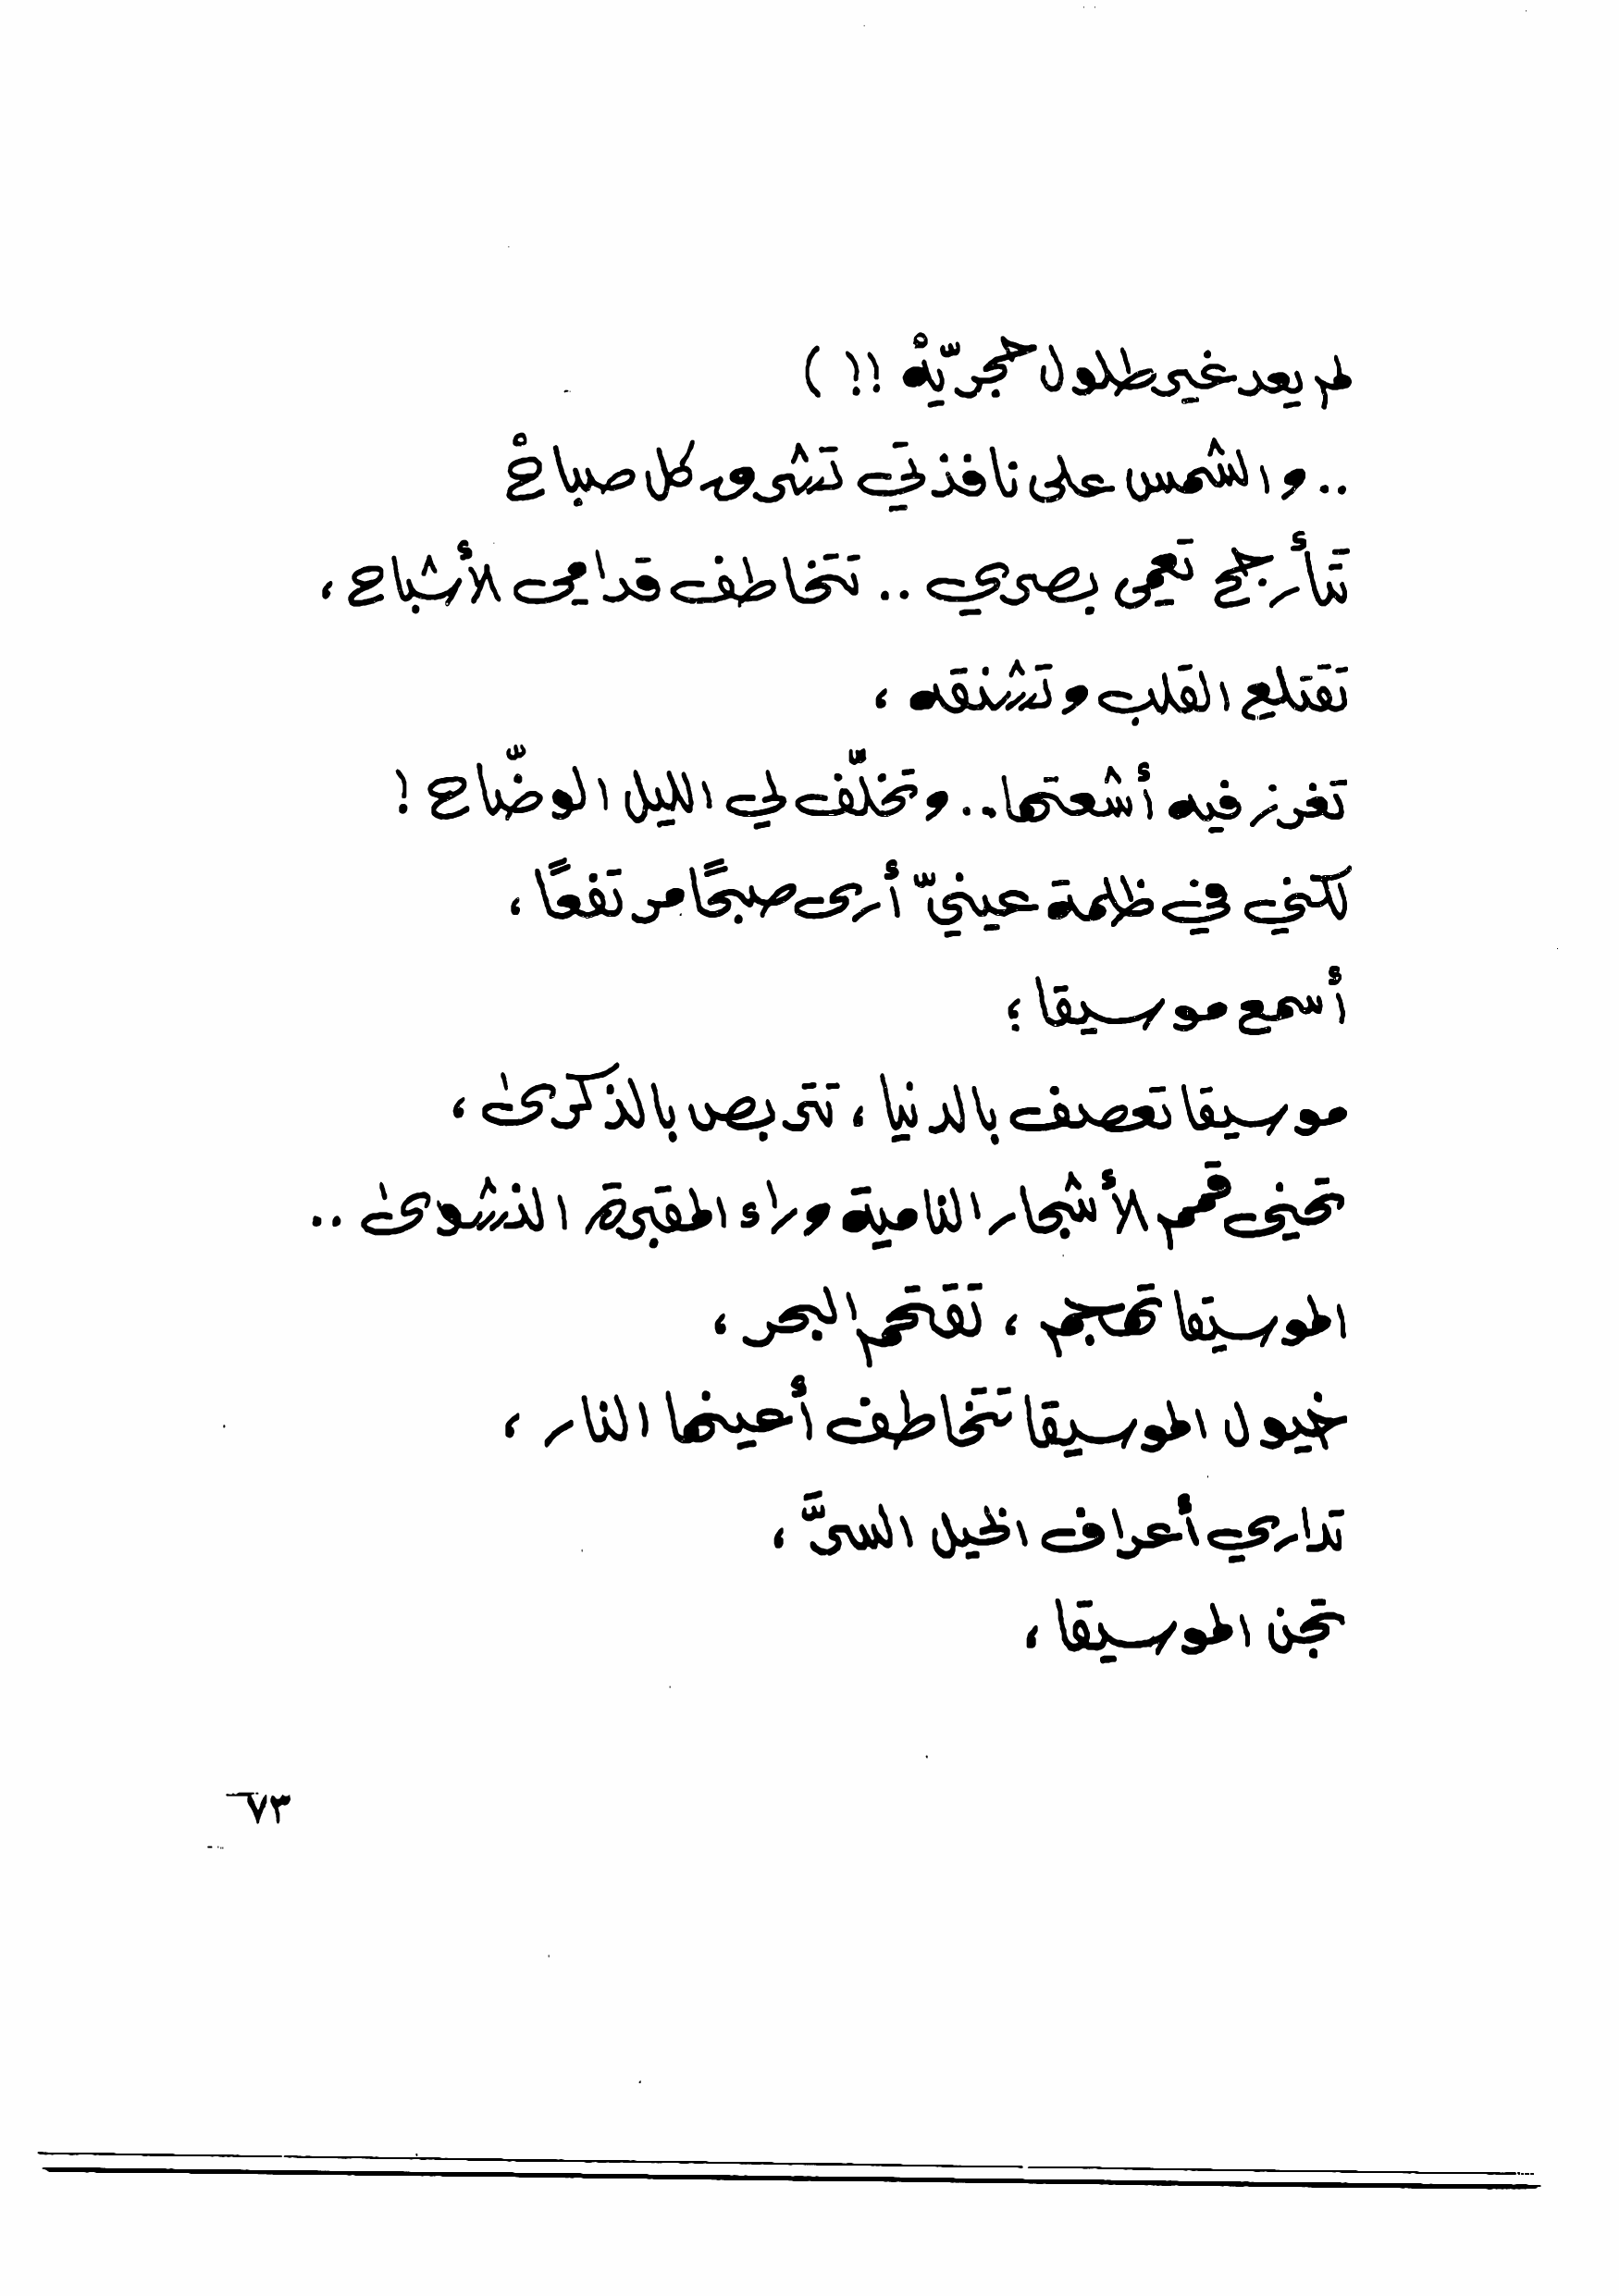 لم يعد غير طلول حجريّهْ !! )
.. والشمس على نافذتي تشرق كل صباحْ
تتأرجح تعمى بصري .. تتخاطف قدامى الأشباح ،
تقتلع القلب وتشنقه ،
تغرز فيه أشعتها .. وتخلّف لي الليل الوضّاح !
لكنني في ظلمة عينيّ أرى صبحًا مرتفعًا ،
أسمع موسيقا ؛
موسيقا تعصف بالدنيا ، تتربص بالذكرى ،
تحنى قمم الأشجار النامية وراء المقبرة النشوى ..
الموسيقا تهاجم ، تقتحم البحر ،
خيول الموسيقا تتخاطف أعينها النار ،
تداري أعراف الخيل السرَّ ،
تجن الموسيقا ،
٧٣